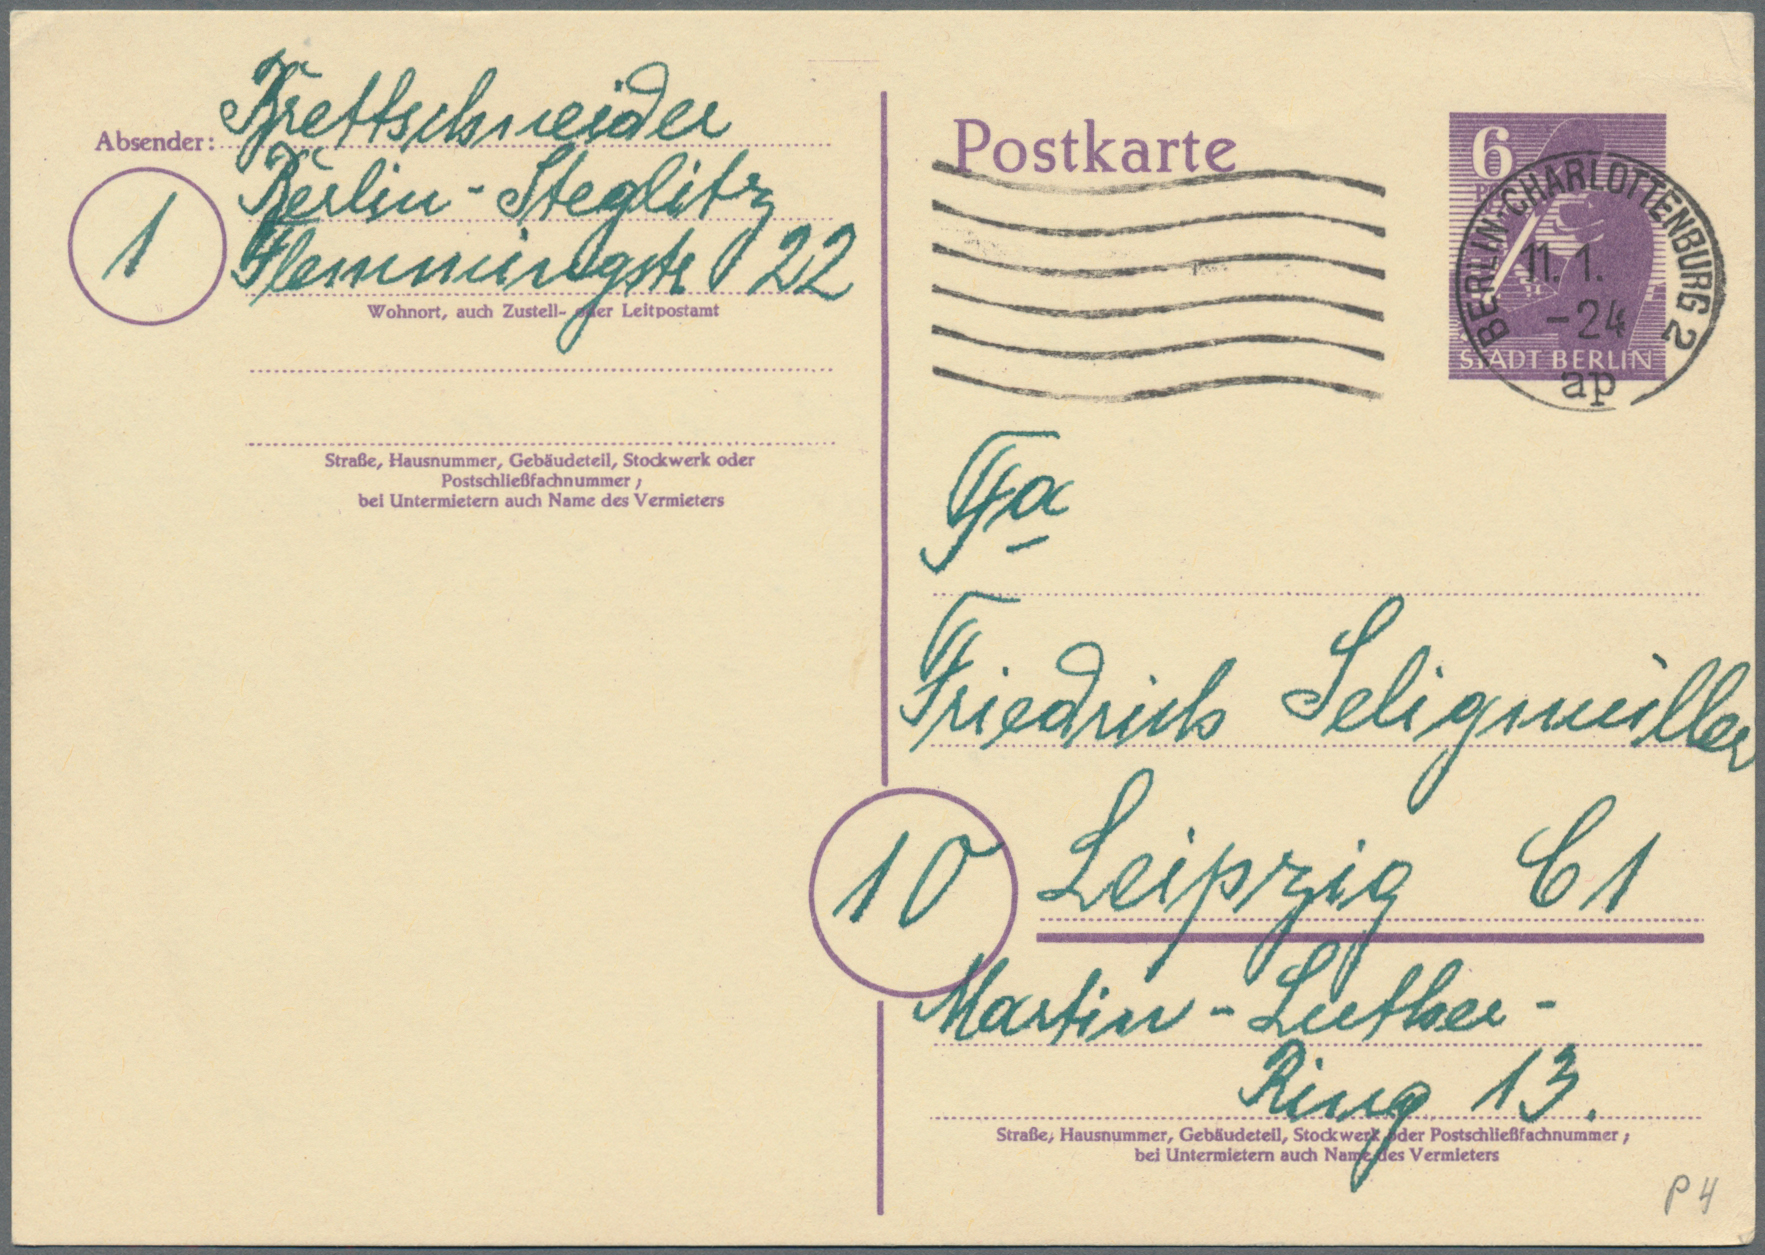 Absender: Brettschneider
1
Berlin-Steglitz
Flemmingstr 22
Wohnort, auch Zustell- oder Leitpostamt
Straße, Hausnummer, Gebäudeteil, Stockwerk oder
Postschließfachnummer;
bei Untermietern auch Name des Vermieters
Postkarte
6
STADT BERLIN
BERLIN-CHARLOTTENBURG 2
11. 1.
-24
ap
Fa
Friedrich Seligmüller
10
Leipzig C1
Martin-Luther-
Ring 13.
Straße, Hausnummer, Gebäudeteil, Stockwerk oder Postschließfachnummer;
bei Untermietern auch Name des Vermieters
P 4